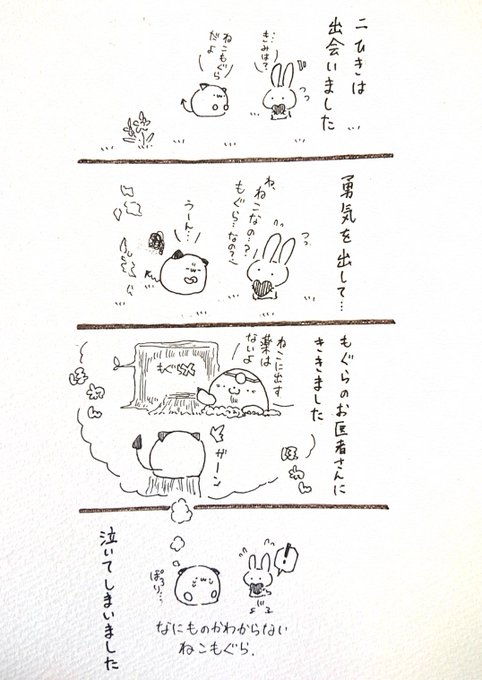 二ひきは
出会いました
…きみは?
ねこもぐら
だよ
勇気を出して…
ね、ねこなの…?
もぐら…なの…?
うーん…
もぐらのお医者さんに
ききました
ほわん
ねこに出す
薬は
ないよ
ザーン
ほわん
!
ぽろり…
なにものかわからない
ねこもぐら.
泣いてしまいました